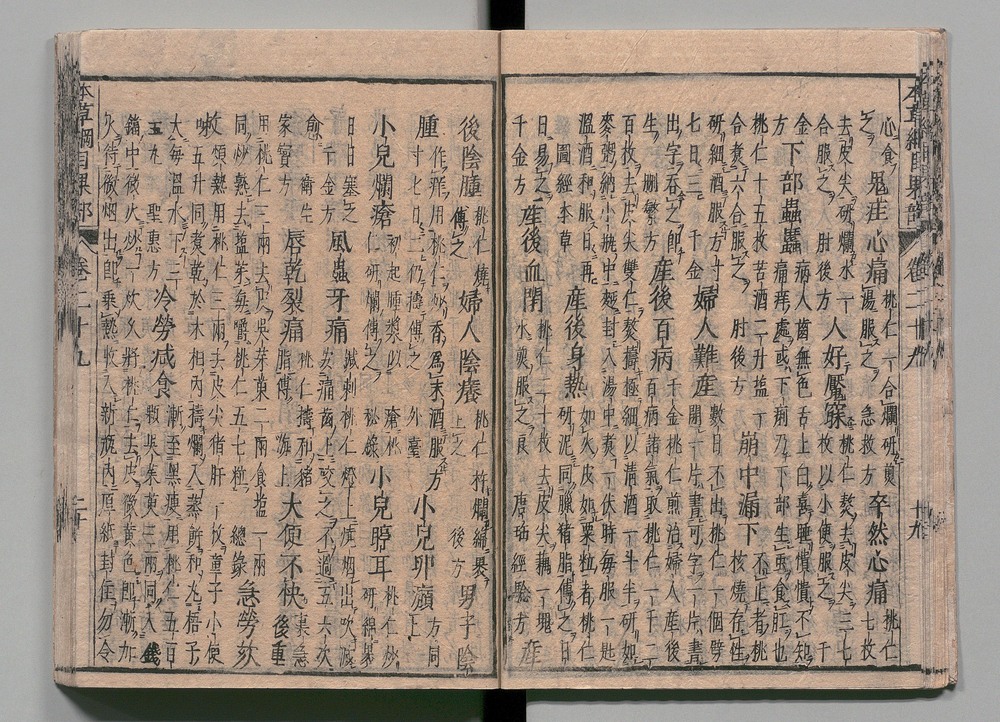 本草綱目果部 卷二十九 十九
心食之 鬼疰心痛 桃仁一合爛研煎湯服之 急救方 卒然心痛 桃仁七枚
去皮尖研爛水一合服之 肘後方 人好魘寐 桃仁熬去皮尖三七枚以小便服之 千
金方 下部蟲䘌 病人齒無色舌上白喜睡憒憒不知痛痒處或下痢乃下部生蟲食肛也
桃仁十五枚苦酒二升塩一合煮六合服之 肘後方 崩中漏下 不止者桃核燒存性
研細酒服方寸匕日三 千金 婦人難産 數日不出桃仁一個劈開一片書可字一片書
出字吞之即生 刪繁方 産後百病 千金桃仁煎治婦人産後百病諸氣取桃仁一千二
百枚去皮尖雙仁熬擣極細以清酒一斗半研如麥粥納小䃸中麵封入湯中煮一伏時每服一匙
溫酒和服日再 圖經本草 産後身熱 如火皮如粟粒者桃仁研泥同臘猪脂傅之日
日易之 千金方 産後血閉 桃仁二十枚去皮尖藕一塊水煎服之良 唐瑤經驗方 産
後陰腫 桃仁燒傅之 婦人陰癢 桃仁杵爛綿裹上之 肘後方 男子陰
腫 作痒用桃仁炒香為末酒服方寸匕日二仍擣傅之 外臺 小兒卵㿗 方同上
小兒爛瘡 初起腫漿似火瘡桃仁研爛傅之 秘錄 小兒聤耳 桃仁炒研綿裹
日日塞之 千金方 風蟲牙痛 鍼刺桃仁燈上燒烟出吹滅安痛齒上咬之不過五六次
愈 衛生家寶方 唇乾裂痛 桃仁擣和猪脂傅 海上 大便不快 裏急後重
用桃仁三兩去皮吳茱萸二兩食塩一兩同炒熟去塩茱每嚼桃仁五七粒 總錄 急勞欬
嗽煩熱用桃仁三兩去皮尖猪肝一枚童子小便五升同煮乾於木臼內擣爛入蒸餅和丸梧子
大每溫水下三十丸 聖惠方 冷勞減食 漸至黑瘦用桃仁五百顆吳茱萸三兩同入鐵
鐺中微火炒一炊久將桃仁一去皮微黃色即漸加火待微烟出即乘熱收入新瓶內原紙封住勿令
本草綱目果部 卷二十九 二十